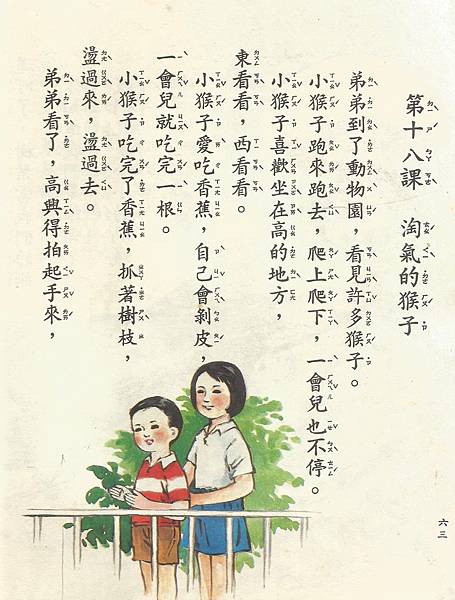 第十八課　淘氣的猴子
弟弟到了動物園，看見許多猴子。
小猴子跑來跑去，爬上爬下，一會兒也不停。
小猴子喜歡坐在高的地方，
東看看，西看看。
小猴子愛吃香蕉，自己會剝皮，
一會兒就吃完一根。
小猴子吃完了香蕉，抓著樹枝，
盪過來，盪過去。
弟弟看了，高興得拍起手來，
六三